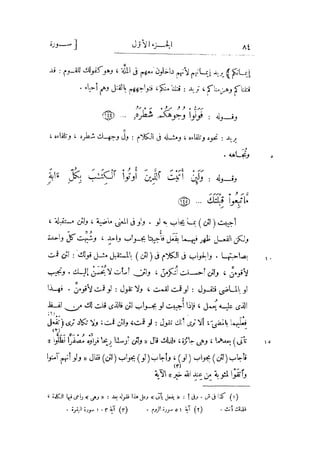 ٨٤ الجزء الأول [ سورة
إيمانكم ﴾ يريد إيمانهم لأنهم داخلون معهم فى الملّة ، وهو كقولك للقوم : قد
قتلناكم وهزمناكم ، تريد : قتلنا منكم ، فتواجههم بالقتل وهم أحياء .
وقوله : فَوَلُّوا وُجُوهَكُمْ شَطْرَهُ ... (١٤٤)
يريد : نحوه وتلقاءه ، ومثله فى الكلام : ولّ وجهك شطره ، وتلقاءه ،
٥ وتجاهه .
وقوله : وَلَئِنْ أَتَيْتَ الَّذِينَ أُوتُوا الْكِتَٰبَ بِكُلِّ ءَايَةٍ
مَّا تَبِعُوا قِبْلَتَكَ ... (١٤٥)
أجيبت (لئن) بما يجاب به لو . ولو فى المعنى ماضية ، ولئن مستقبلة ،
ولكن الفعل ظهر فيهما بفَعل فأجيبتا بجواب واحد ، وشُبّهت كلّ واحدة
١٠ بصاحبتها . والجواب فى الكلام فى (لئن) بالمستقبل مثل قولك : لئن قمت
لأقومنّ ، ولئن أحسنت لتُكرمنّ ، ولئن أسأت لا يُحْسَنْ إليك . وتجيب
لو بالماضى فتقول : لو قمت لقمت ، ولا تقول : لو قمت لأقومنّ . فهذا
الذى عليه يُعمل ، فإذا أُجيبت لو بجواب لئن فالذى قلت لك من لفظ
فِعْليهما بالمضىّ ، ألا ترى أنك تقول : لو قمت ، ولئن قمت ، ولا تكاد ترى (تفعل
١٥ تأتى) بعدهما ، وهى جائزة ، فلذلك قال «ولئن أرسلنا ريحا فرأوه مصفرّا لظلّوا»
فأجاب (لئن) بجواب (لو) ، وأجاب (لو) بجواب (لئن) فقال «ولو أنهم آمنوا
واتّقوا لمثوبة من عند الله خير» الآية
(١) كذا فى ش . وفى أ : « يفعل يأتى » وعلى هذا فقوله بعد : « وهى » راعى فيها الكلمة ،
فلذلك أنث . (٢) آية ٥١ سورة الروم . (٣) آية ١٠٣ سورة البقرة .